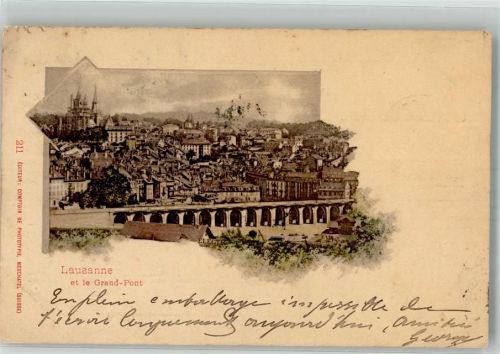 211 EDITEUR: COMPTOIR DE PHOTOTYPIE, NEUCHATEL (SUISSE)
Lausanne
et le Grand-Pont
En plein emballage impossible de
t'écrire longuement aujourd'hui, Amitiés
Georg